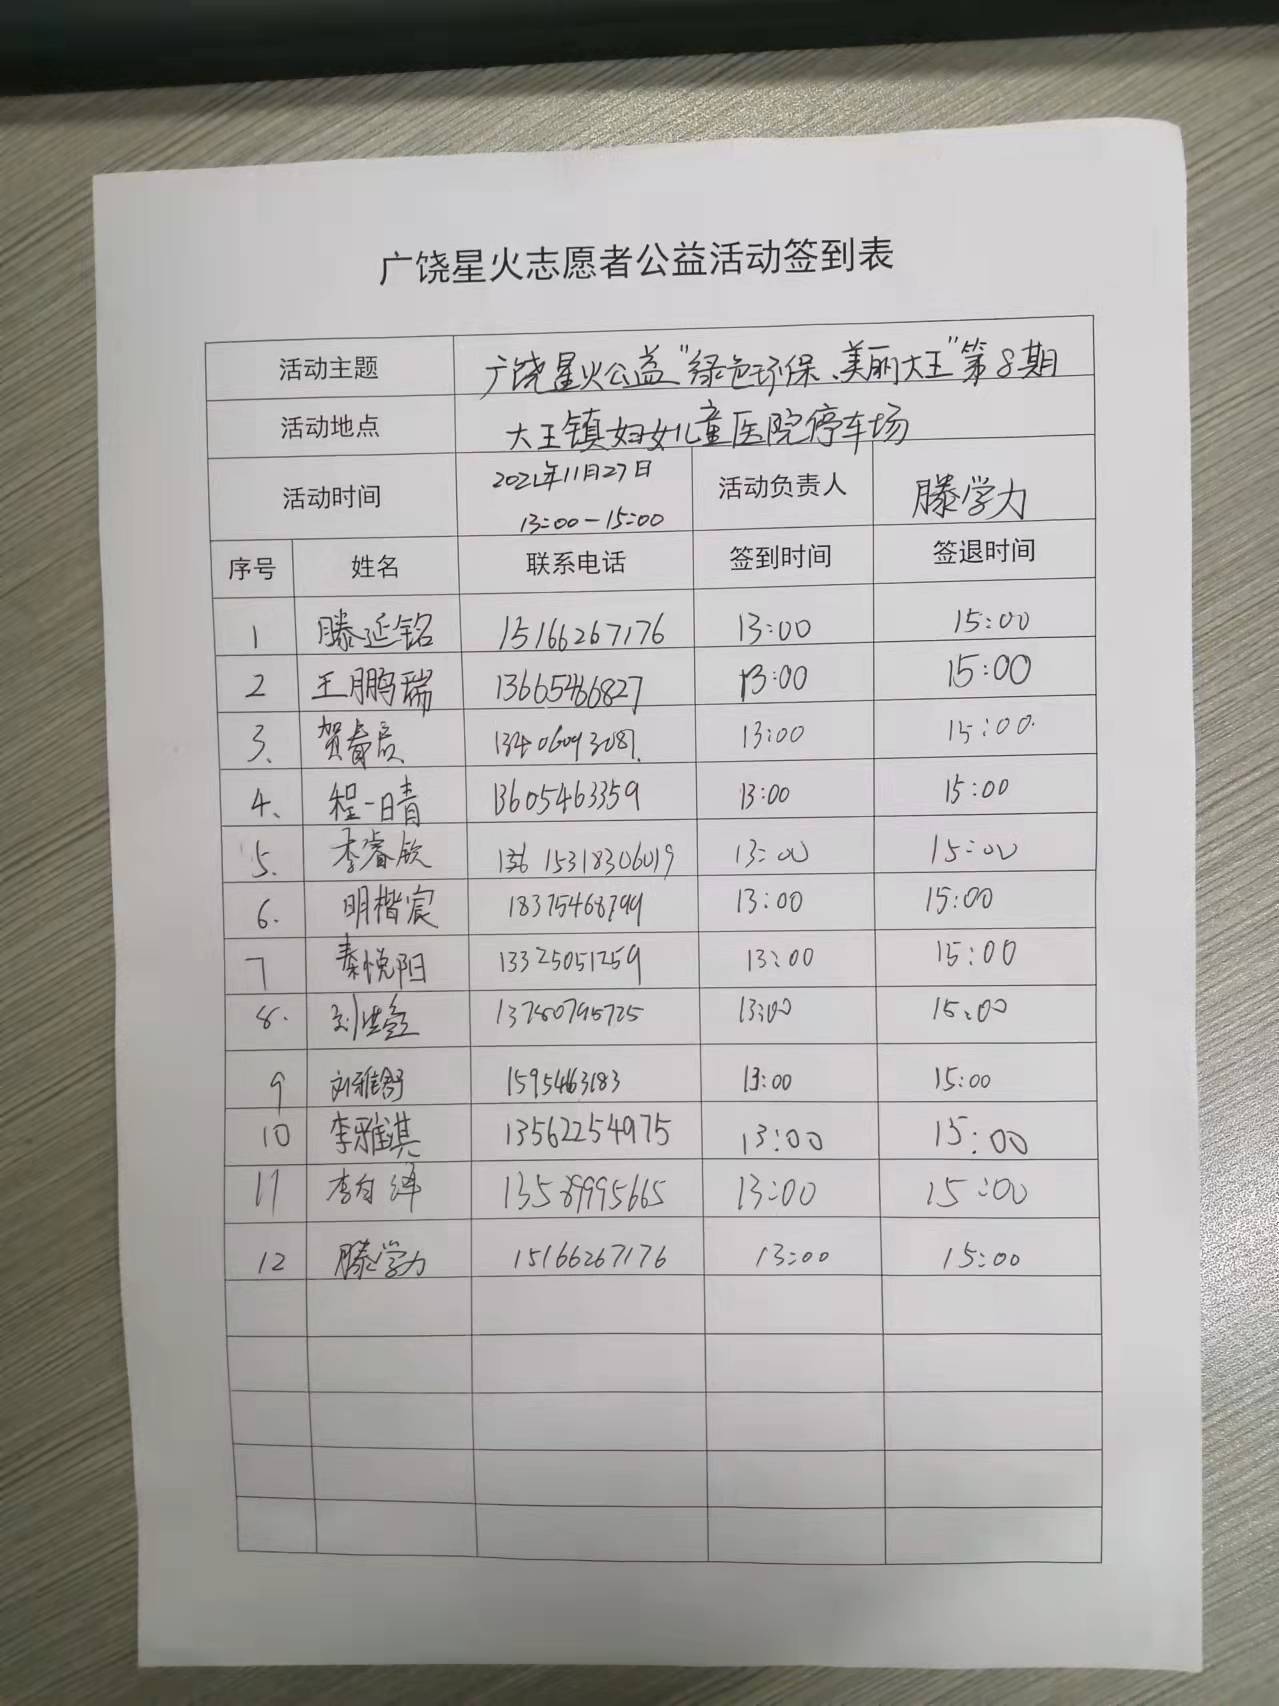 广饶星火志愿者公益活动签到表
活动主题 广饶星火公益"绿色环保、美丽大王"第8期
活动地点 大王镇妇女儿童医院停车场
活动时间 2021年11月27日 13:00-15:00 活动负责人 滕学力
序号 姓名 联系电话 签到时间 签退时间
1 滕延铭 15166267176 13:00 15:00
2 王鹏瑞 13665466827 13:00 15:00
3、 贺春辰 13406093081. 13:00 15:00.
4、 程一晴 13605463359 13:00 15:00
5. 李睿钦 15318306019 13:00 15:00
6. 明楷宸 18375468799 13:00 15:00
7 秦悦阳 13325051259 13:00 15:00
8. 13780795725 13:00 15:00
9 刘雅舒 1595463183 13:00 15:00
10 李雅淇 13562254975 13:00 15:00
11 13589995665 13:00 15:00
12 滕学力 15166267176 13:00 15:00